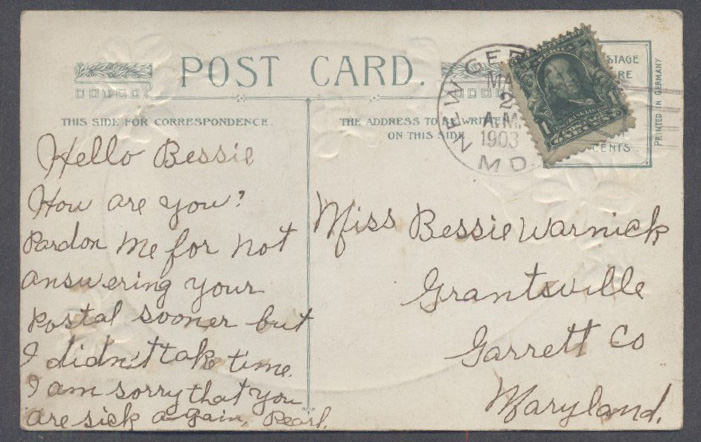 POST CARD.
THIS SIDE FOR CORRESPONDENCE.
THE ADDRESS TO BE WRITTEN
ON THIS SIDE.
NEW GER
MA
2
A.M.
1903
MD.
1
STAGE
RE
CENTS.
PRINTED IN GERMANY
Hello Bessie
How are you?
Pardon me for not
answering your
postal sooner but
I didn't take time.
I am sorry that you
are sick again, Pearl.
Miss Bessie Warnick
Grantsville
Garrett Co
Maryland.